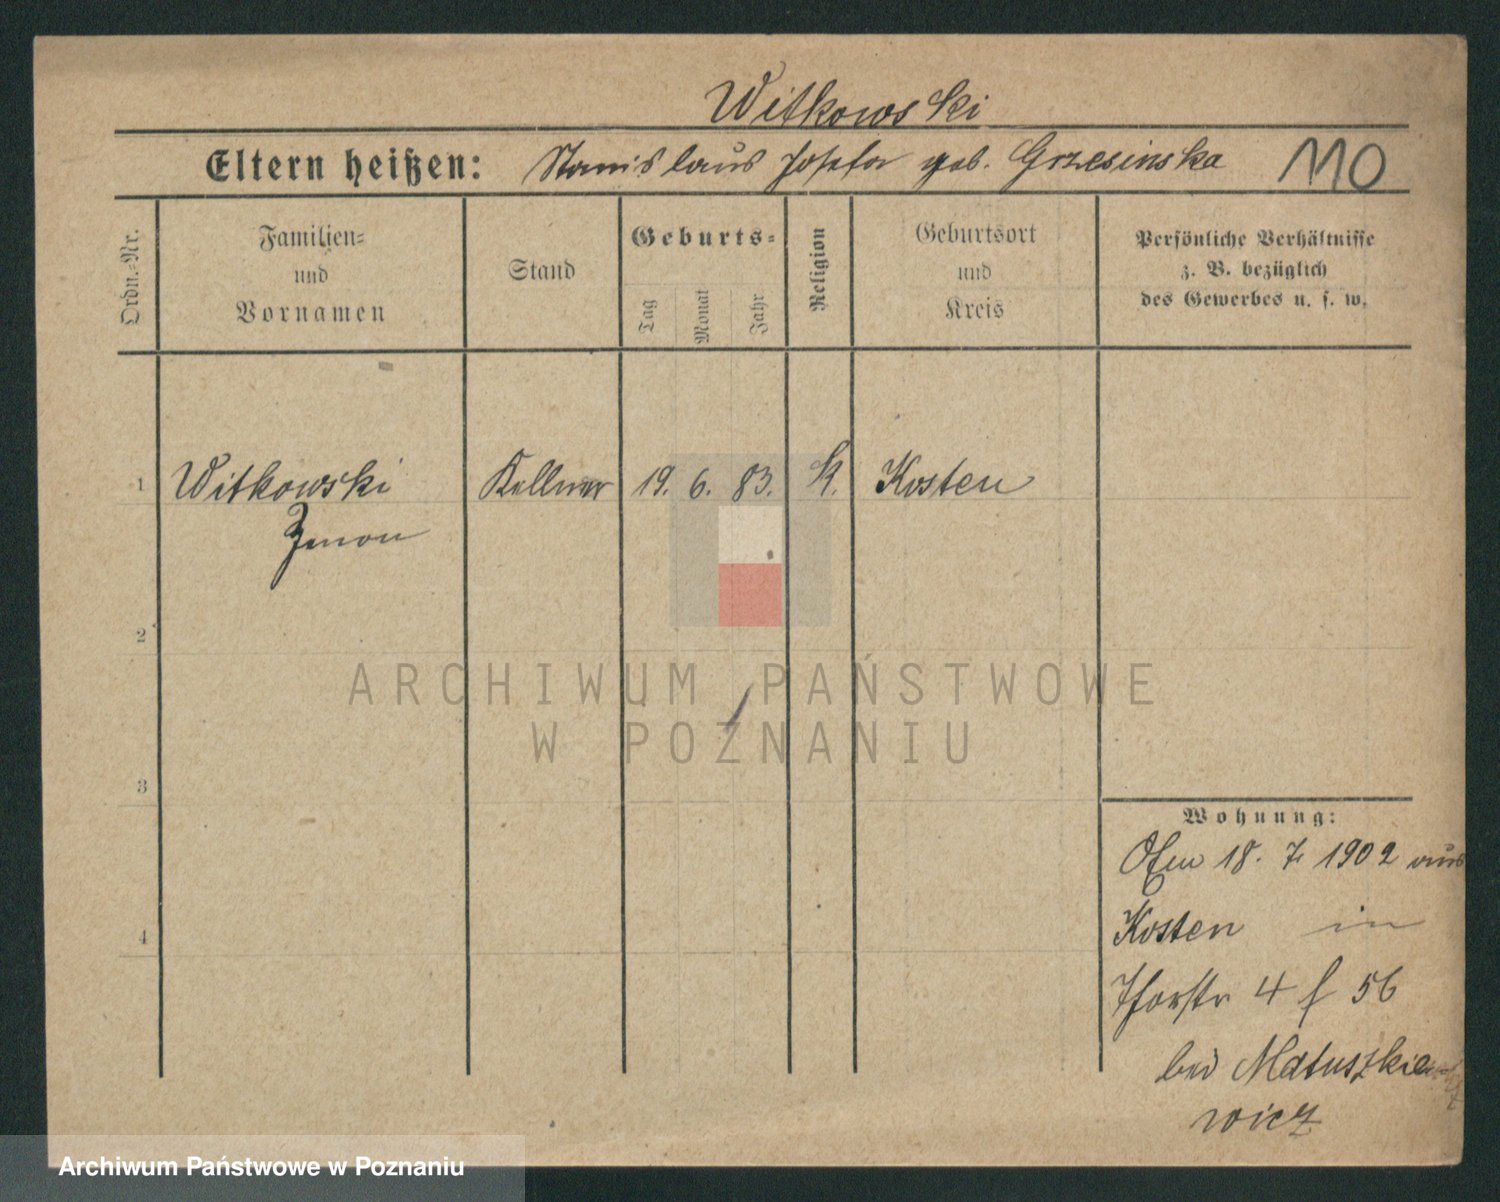 Witkowski
Eltern heißen: Stanislaus Josefa geb. Grzesinska 110
Ordn.-Nr.
Familien-
und
Vornamen
Stand
Geburts-
Tag
Monat
Jahr
Religion
Geburtsort
und
Kreis
Persönliche Verhältnisse
z. B. bezüglich
des Gewerbes u. s. w.
1 Witkowski Kellner 19. 6. 83. k. Kosten
Zenon
2
3
4
ARCHIWUM PAŃSTWOWE
W POZNANIU
Wohnung:
18. 7 1902 aus
Kosten in
Thorstr 4 f 56
bei Matuszkie
wicz
Archiwum Państwowe w Poznaniu